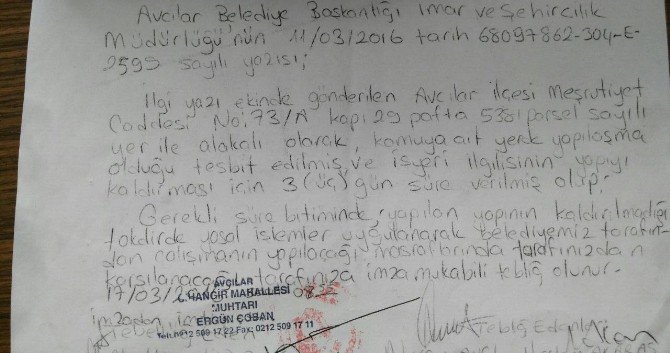 Avcılar Belediye Başkanlığı İmar ve Şehircilik
Müdürlüğü'nün 11/03/2016 tarih 68097862-304-E-
2599 sayılı yazısı;
İlgi yazı ekinde gönderilen Avcılar ilçesi Meşrutiyet
Caddesi No:73/A kapı 29 pafta 5381 parsel sayılı
yer ile alakalı olarak, kamuya ait yerde yapılaşma
olduğu tesbit edilmiş ve işyeri ilgilisinin yapıyı
kaldırması için 3(üç) gün süre verilmiş olup;
Gerekli süre bitiminde, yapılan yapının kaldırılmadığı
takdirde yasal işlemler uygulanarak belediyemiz tarafın-
dan çalışmanın yapılacağı masraflarında tarafınızdan
karşılanacağı tarafınıza imza mukabili tebliğ olunur.
17/03/20
AVCILAR
CİHANGİR MAHALLESİ
MUHTARI
ERGÜN ÇOBAN
Tel: 0212 509 17 22 Fax: 0212 509 17 11
Tebliğ Eden